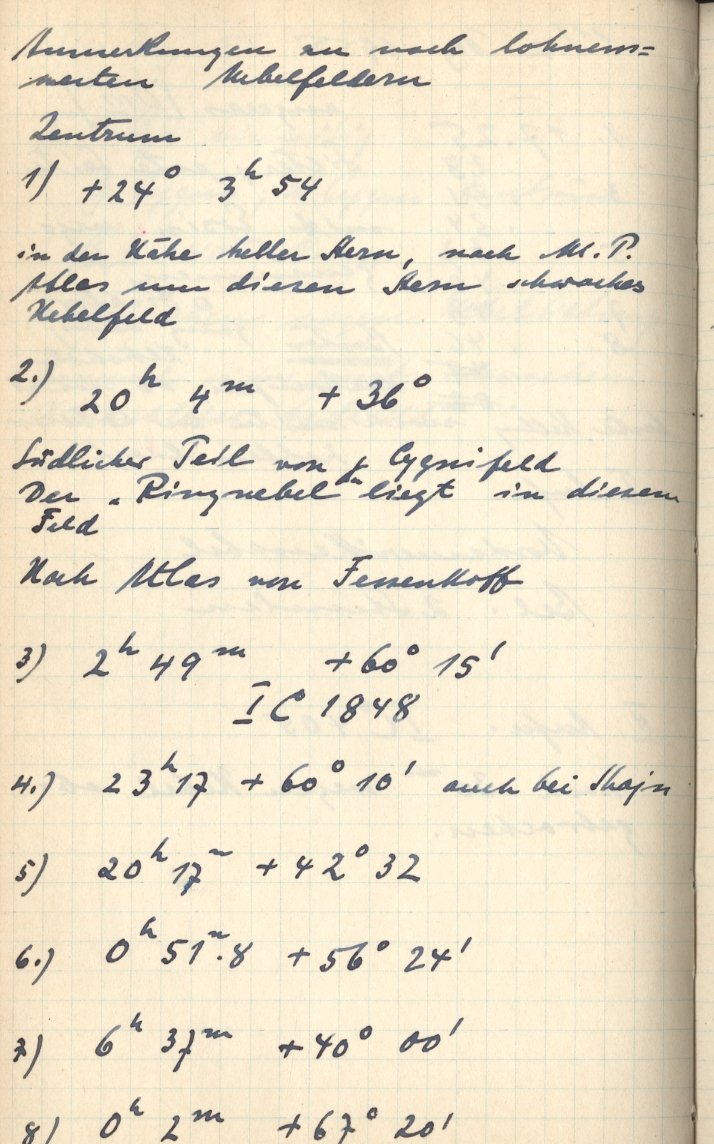 Anmerkungen zu noch lohnens=
werten Nebelfeldern
Zentrum
1) +24° 3ʰ 54
in der Nähe heller Stern, nach M.P.
Atlas um diesen Stern schwaches
Nebelfeld
2.) 20ʰ 4ᵐ +36°
Südlicher Teil von γ Cygnifeld
Der „Ringnebel" liegt in diesem
Feld
Nach Atlas von Fessenkoff
3) 2ʰ 49ᵐ +60° 15'
IC 1848
4.) 23ʰ 17 +60° 10' auch bei Shajn
5) 20ʰ 17ᵐ +42° 32
6.) 0ʰ 51ᵐ.8 +56° 24'
7) 6ʰ 37ᵐ +40° 00'
8) 0ʰ 2ᵐ +67° 20'